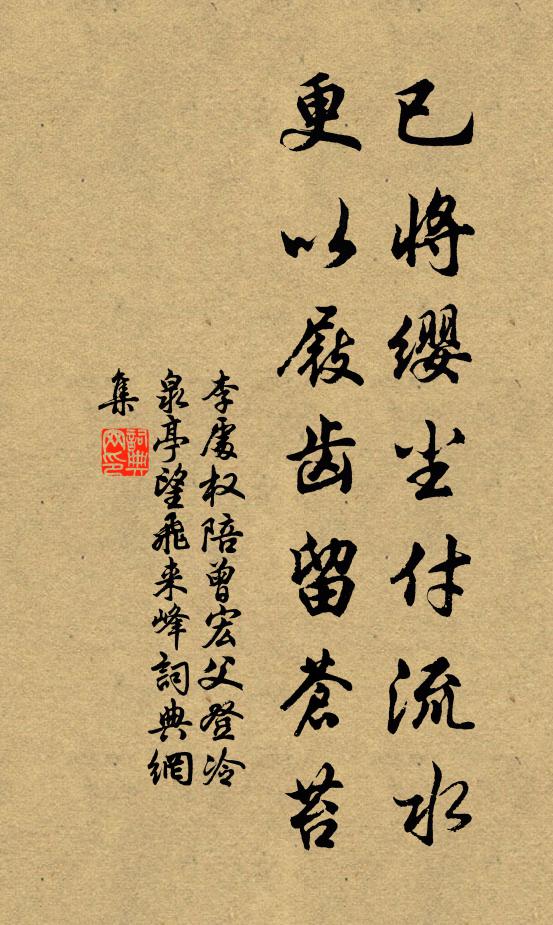 已将缨尘付流水
更以屐齿留苍苔
李處权陪曾宏父登冷
泉亭望飛来峰詞典網
集
詞典網印